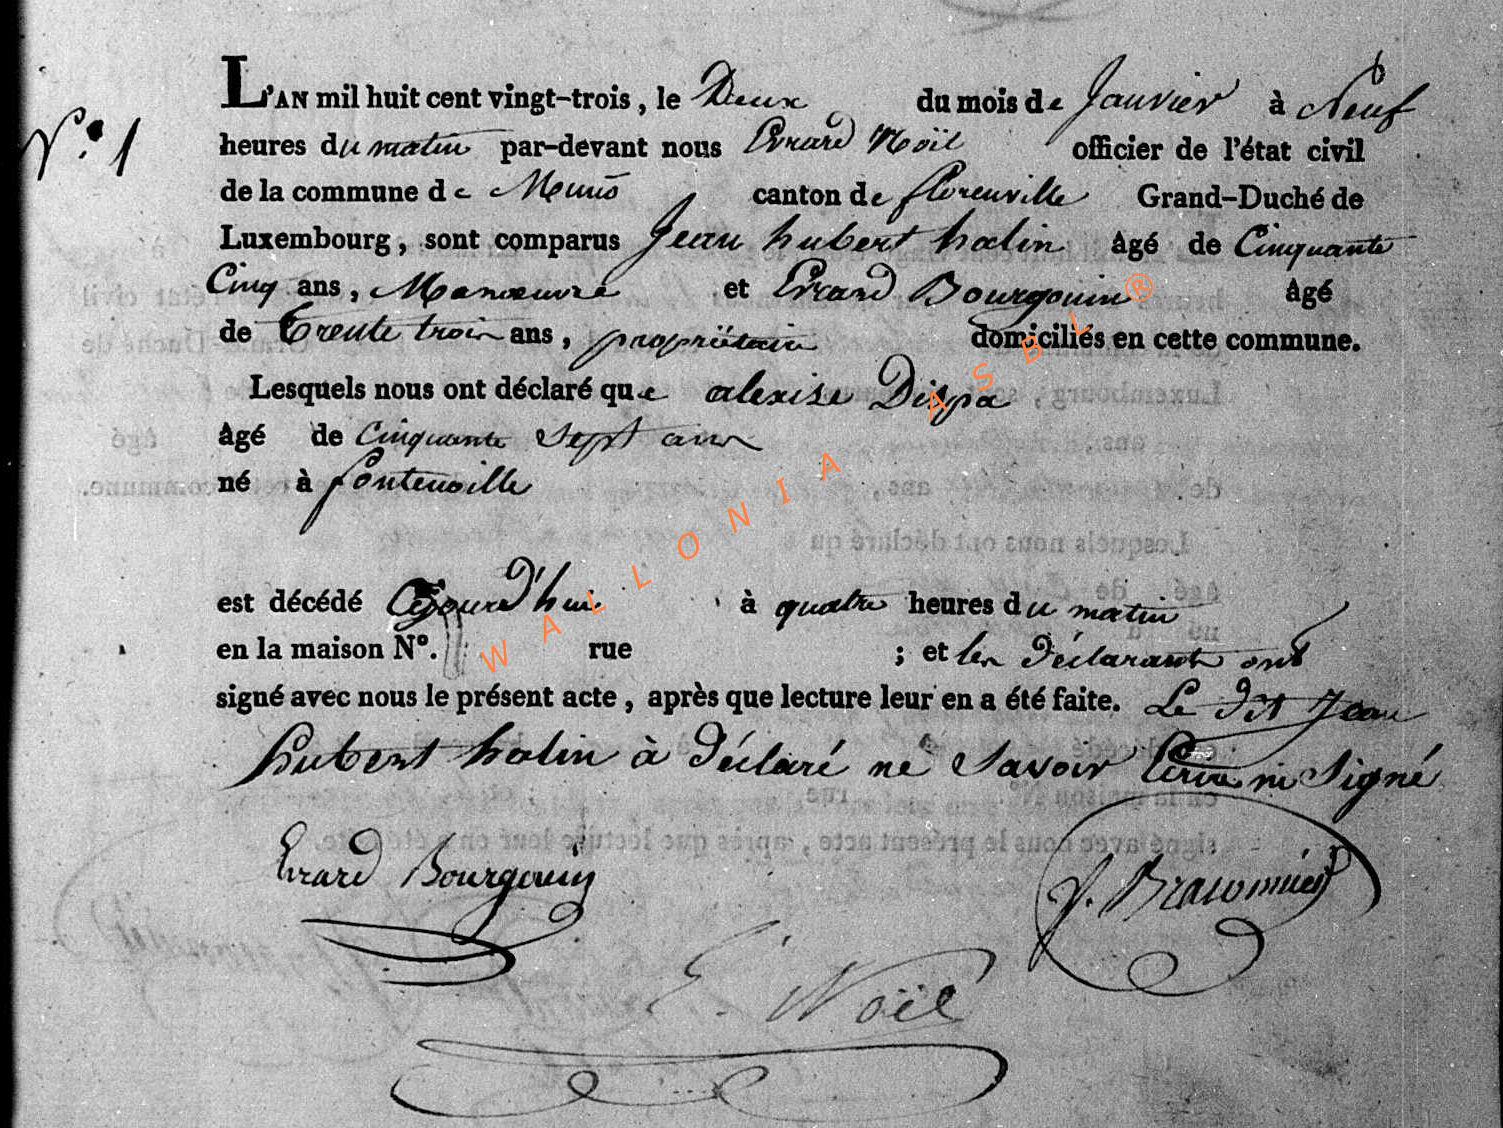 N°. 1
L'AN mil huit cent vingt-trois, le Deux du mois de Janvier à Neuf
heures du matin par-devant nous Evrard Noël officier de l'état civil
de la commune de Muno canton de florenville Grand-Duché de
Luxembourg, sont comparus Jean hubert halin âgé de Cinquante
Cinq ans, Manoeuvre et Evrard Bourgouin âgé
de Trente trois ans, propriétaire domiciliés en cette commune.
Lesquels nous ont déclaré que alexise Dispa
âgé de Cinquante Sept ans
né à fontenoille
est décédé Cejourd'hui à quatre heures du matin
en la maison N°. rue ; et les déclarants ont
signé avec nous le présent acte, après que lecture leur en a été faite. Le Dit Jean
hubert halin à Déclaré ne Savoir Ecrire ni Signé
Evrard Bourgouin
J. Braconnier
E. Noël
WALLONIA ASBL®